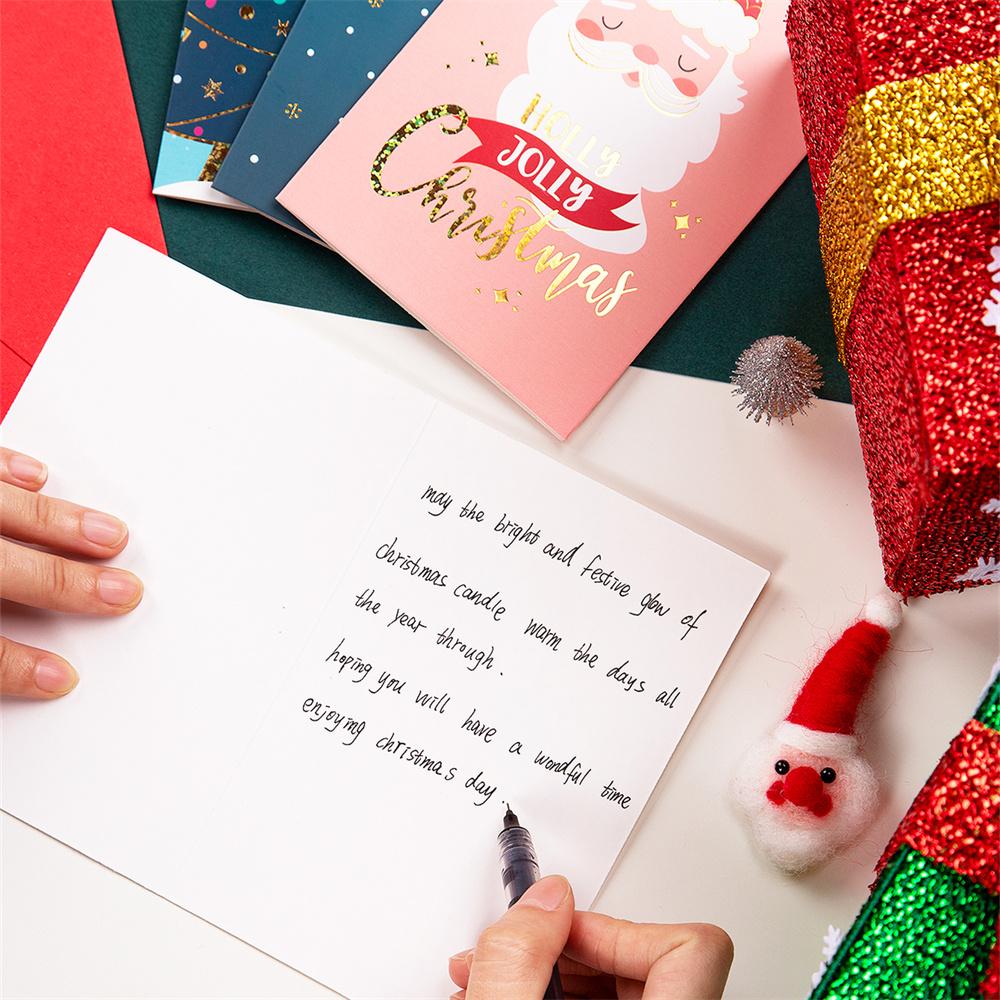 HOLLY
JOLLY
Christmas
may the bright and festive glow of
christmas candle warm the days all
the year through.
hoping you will have a wondful time
enjoying christmas day.